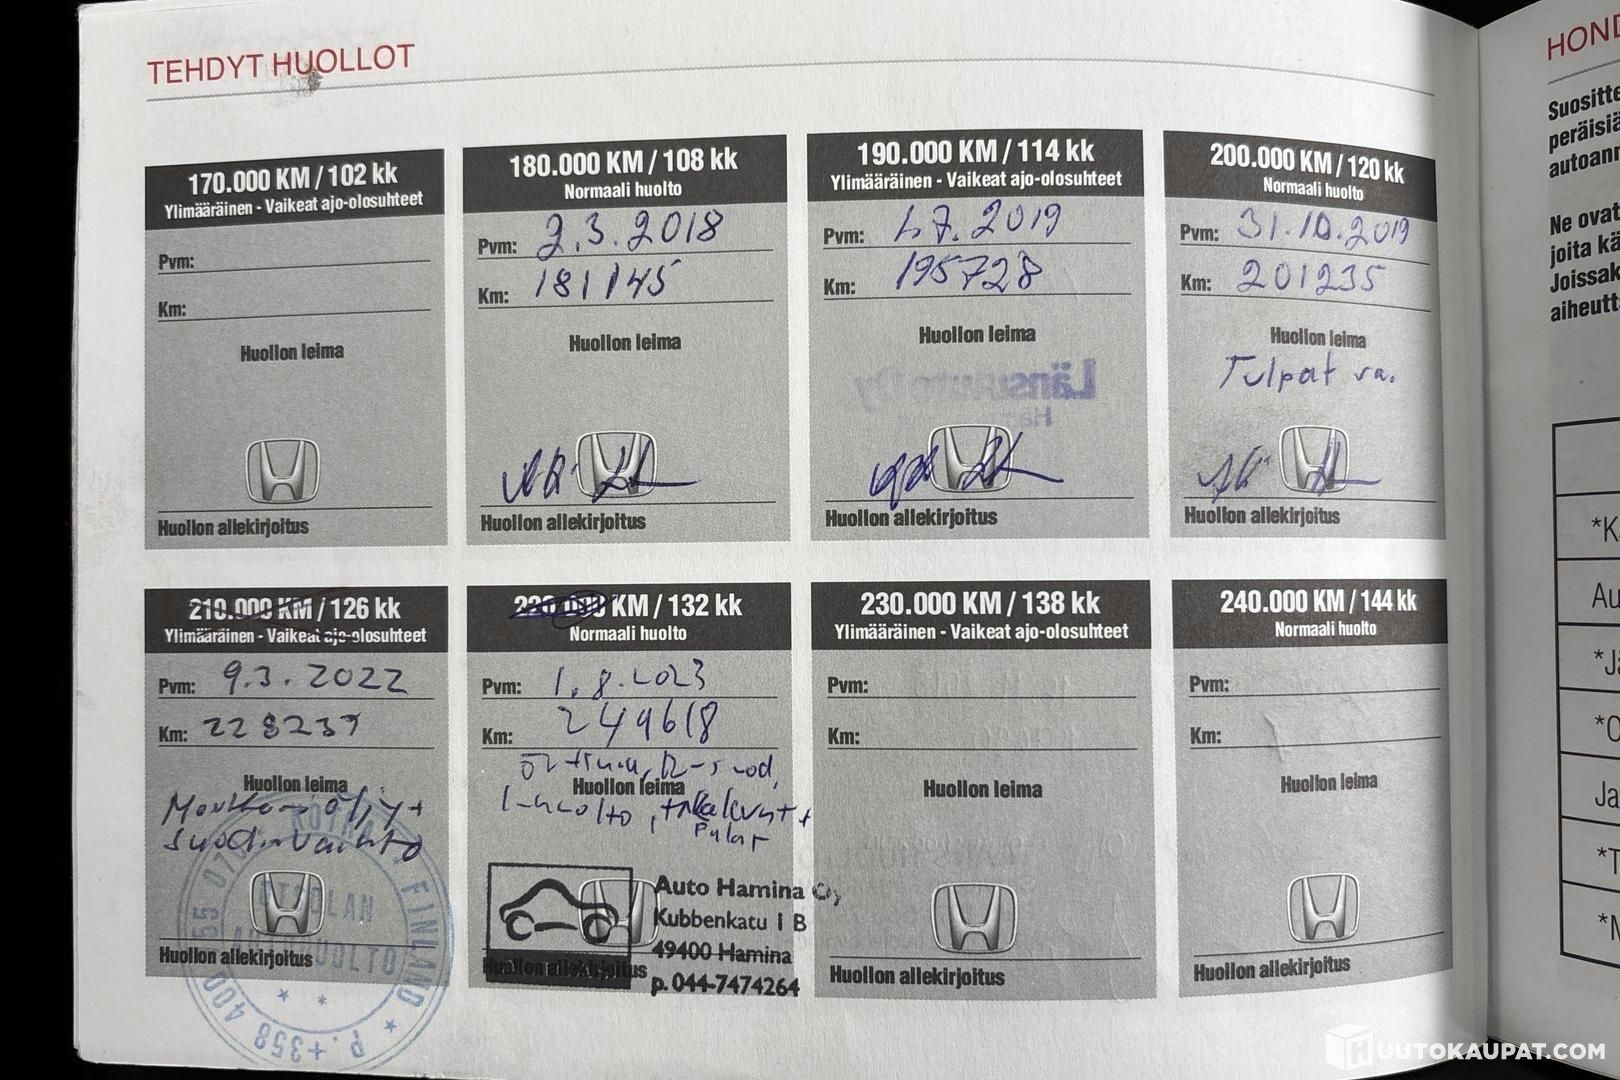 TEHDYT HUOLLOT
170.000 KM / 102 kk
Ylimääräinen - Vaikeat ajo-olosuhteet
Pvm:
Km:
Huollon leima
Huollon allekirjoitus
180.000 KM / 108 kk
Normaali huolto
Pvm: 2.3.2018
Km: 181145
Huollon leima
Huollon allekirjoitus
190.000 KM / 114 kk
Ylimääräinen - Vaikeat ajo-olosuhteet
Pvm: 1.7.2019
Km: 195728
Huollon leima
LänsiAuto Oy
Huollon allekirjoitus
200.000 KM / 120 kk
Normaali huolto
Pvm: 31.10.2019
Km: 201235
Huollon leima
Tulpat va.
Huollon allekirjoitus
210.000 KM / 126 kk
Ylimääräinen - Vaikeat ajo-olosuhteet
Pvm: 9.3.2022
Km: 228237
Huollon leima
öljyt
FINLAND
HUOLTO
P. +358 400
Huollon allekirjoitus
KM / 132 kk
Normaali huolto
Pvm: 1.8.2023
Km: 249618
Huollon leima
Auto Hamina Oy
Kubbenkatu 1 B
49400 Hamina
p. 044-7474264
Huollon allekirjoitus
230.000 KM / 138 kk
Ylimääräinen - Vaikeat ajo-olosuhteet
Pvm:
Km:
Huollon leima
Huollon allekirjoitus
240.000 KM / 144 kk
Normaali huolto
Pvm:
Km:
Huollon leima
Huollon allekirjoitus
HOND
Suositte
peräisiä
autoann
Ne ovat
joita kä
Joissak
aiheutt
*K
Au
*Jä
*O
Ja
*T
*N
HUUTOKAUPAT.COM